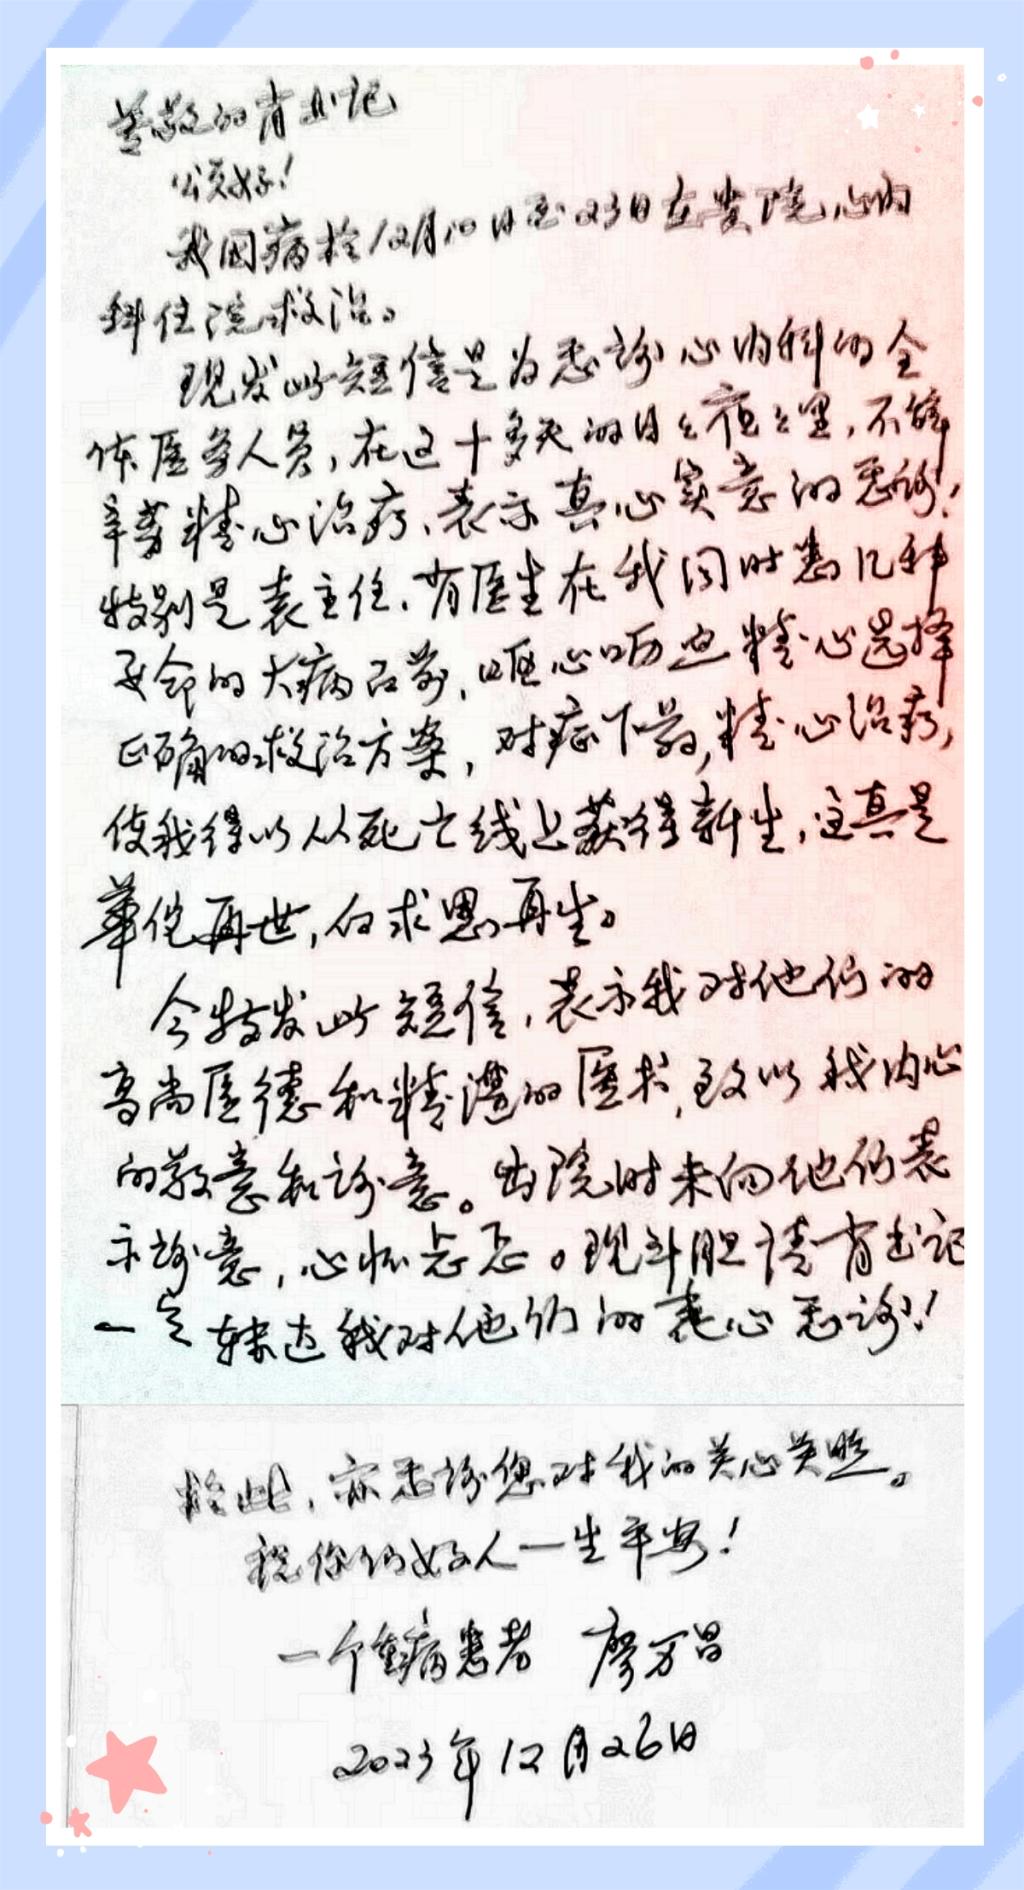 尊敬的肖书记
您好!
我因病于12月10日至23日在贵院心内
科住院救治。
现发此短信是为感谢心内科的全
体医务人员,在这十多天的日日夜夜里,不辞
辛劳精心治疗,表示真心实意的感谢!
特别是袁主任、肖医生在我同时患几种
要命的大病面前,呕心沥血精心选择
正确的救治方案,对症下药,精心治疗,
使我得以从死亡线上获得新生,这真是
华佗再世,白求恩再生。
今特发此短信,表示我对他们的
高尚医德和精湛的医术,致以我内心
的敬意和谢意。出院时未向他们表
示谢意,心怀忐忑。现斗胆请肖书记
一定转达我对他们的衷心感谢!
于此,亦感谢您对我的关心关照。
祝你们好人一生平安!
一个重病患者 廖万昌
2023年12月26日